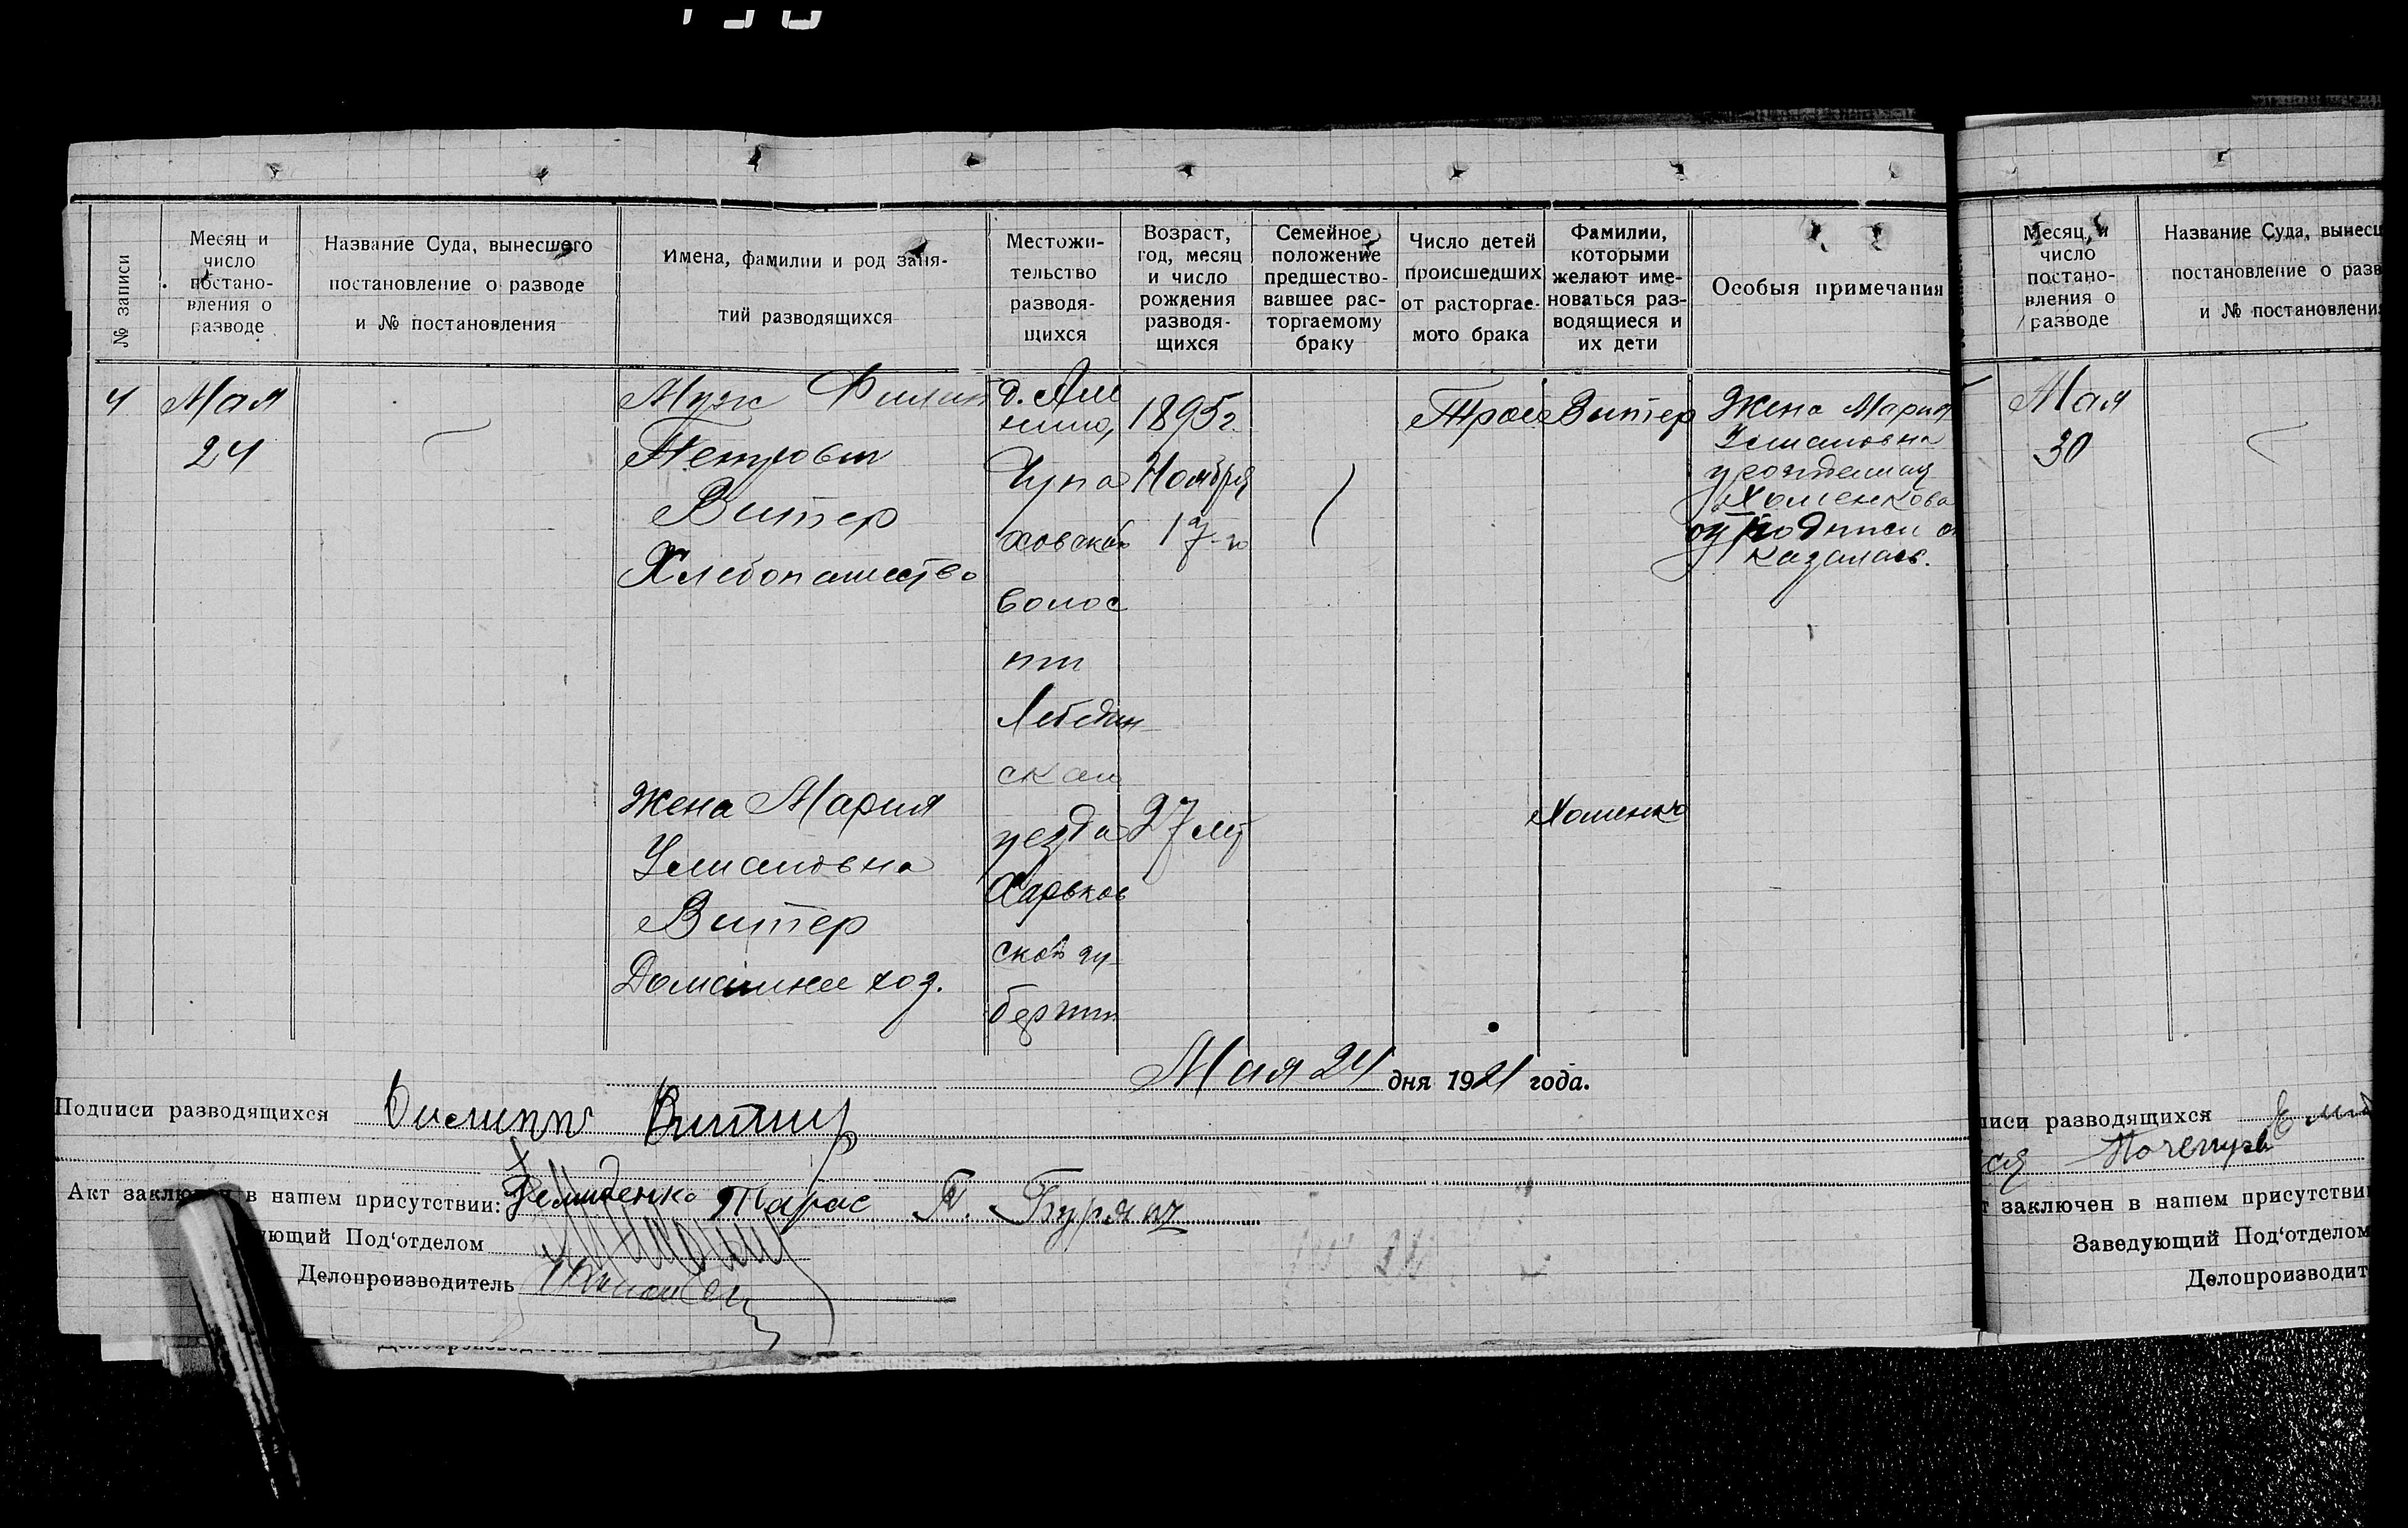 № записи
Месяц и
число
постано-
вления о
разводе
Название Суда, вынесшего
постановление о разводе
и № постановления
Имена, фамилии и род заня-
тий разводящихся
Местожи-
тельство
разводя-
щихся
Возраст,
год, месяц
и число
рождения
разводя-
щихся
Семейное
положение
предшество-
вавшее рас-
торгаемому
браку
Число детей
происшедших
от расторгае-
мого брака
Фамилии,
которыми
желают име-
новаться раз-
водящиеся и
их дети
Особыя примечания
4
Мая
24
Муж Филип
Петрович
Витер
Хлебопашество
Жена Мария
Витер
Домашнее хоз.
Чупа
ховской
волос
ти
Лебедин
уезда
Харьков
ской гу-
бернии
1895 г.
Ноября
17-го
27 лет
Трое
Витер
Хоменко
Жена Мария
урожденная
Хоменкова
от подписи от
казалась.
Мая 24 дня 1921 года.
Подписи разводящихся
Витир
Акт заключен в нашем присутствии: Демиденко Тарас П. Буряк
ующий Под'отделом
Делопроизводитель
Месяц и
число
постано-
вления о
разводе
Название Суда, вынесш
постановление о разв
и № постановления
Мая
30
иси разводящихся
т заключен в нашем присутствии
Заведующий Под'отделом
Делопроизводит